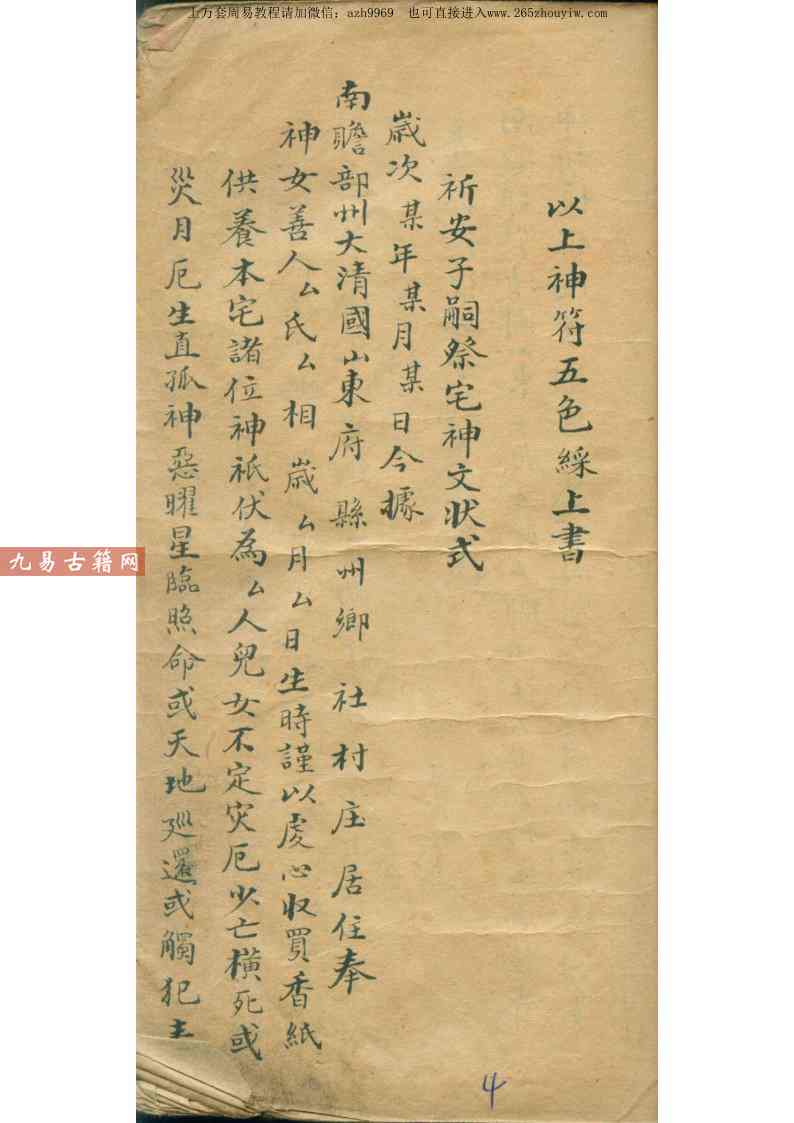 上万套周易教程请加微信：azh9969 也可直接进入www.265zhouyiw.com
以上神符五色綵上書
祈安子嗣祭宅神文状式
歲次某年某月某日今據
南贍部州大清國山東府 縣州鄉 社村庄居住奉
神女善人厶氏厶相 歲厶月厶日生時謹以虔心收買香紙
供養本宅諸位神祇伏為厶人兒女不定灾厄少亡橫死或
災月厄生直孤神惡曜星臨照命或天地廵還或觸犯土
九易古籍网
4